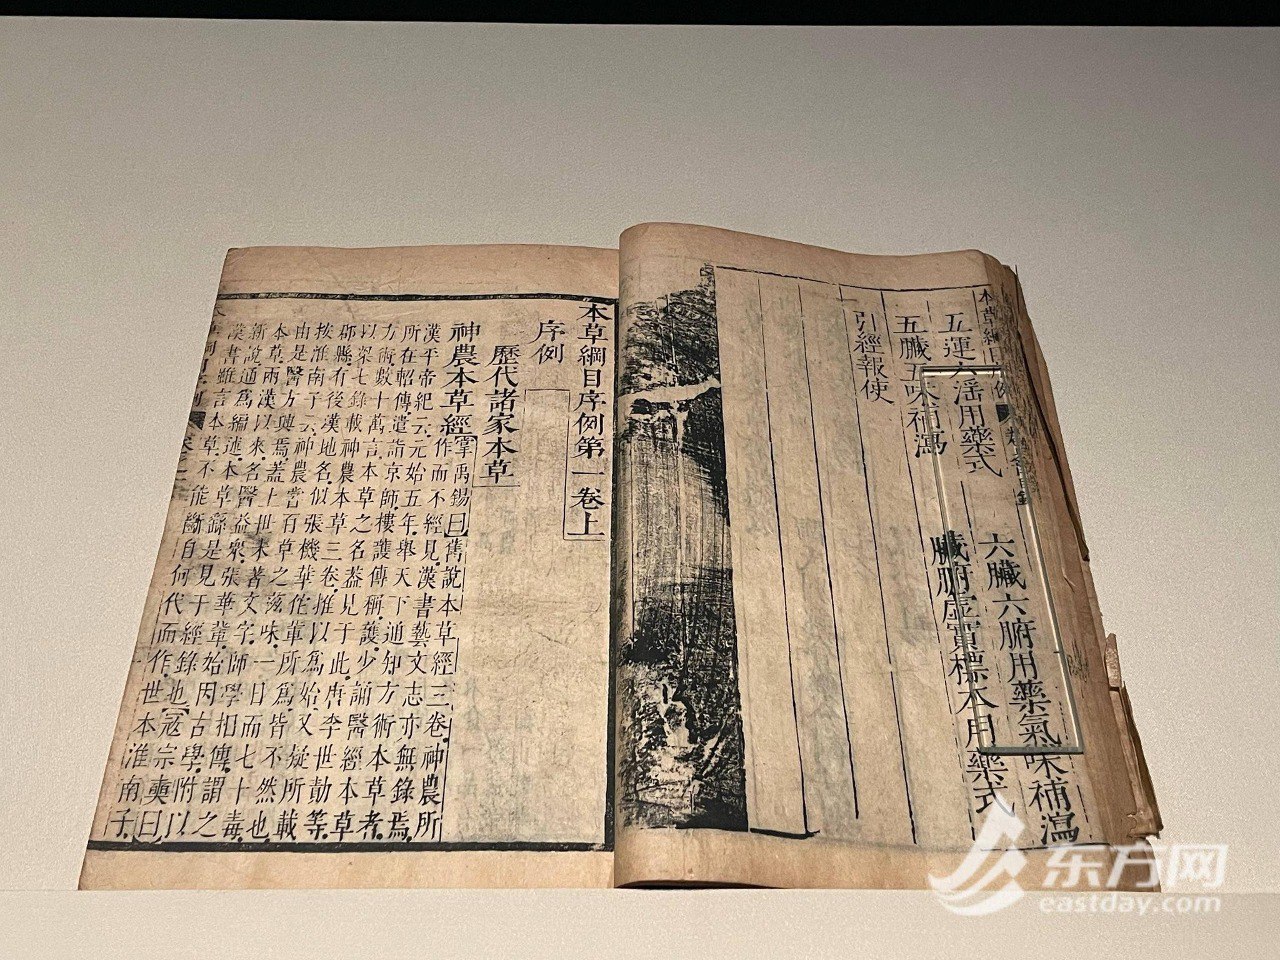 本草綱目序例
五運六淫用藥式 六臟六腑用藥氣味補瀉
五臟五味補瀉 臟腑虛實標本用藥式
引經報使
本草綱目序例第一卷上
序例
歷代諸家本草
神農本草經 掌禹錫曰舊說本草經三卷神農所
作而不經見漢書藝文志亦無錄焉
漢平帝紀云元始五年舉天下通知方術本草者
所在軺傳遣詣京師樓護傳稱護少誦醫經本草
方術數十萬言本草之名葢見于此唐李世勣等
以梁七錄載神農本草三卷推以為始又疑所載
郡縣有後漢地名似張機華佗軰所為皆不然也
按淮南子云神農嘗百草之滋味一日而七十毒
由是醫方興焉葢上世未著文字師學相傳謂之
本草兩漢以來名醫益衆張華軰始因古學附以
新說通為編述本草繇是見于經錄也寇宗奭曰
漢書雖言本草不能斷自何代而作世本淮南子
东方网
eastday.com